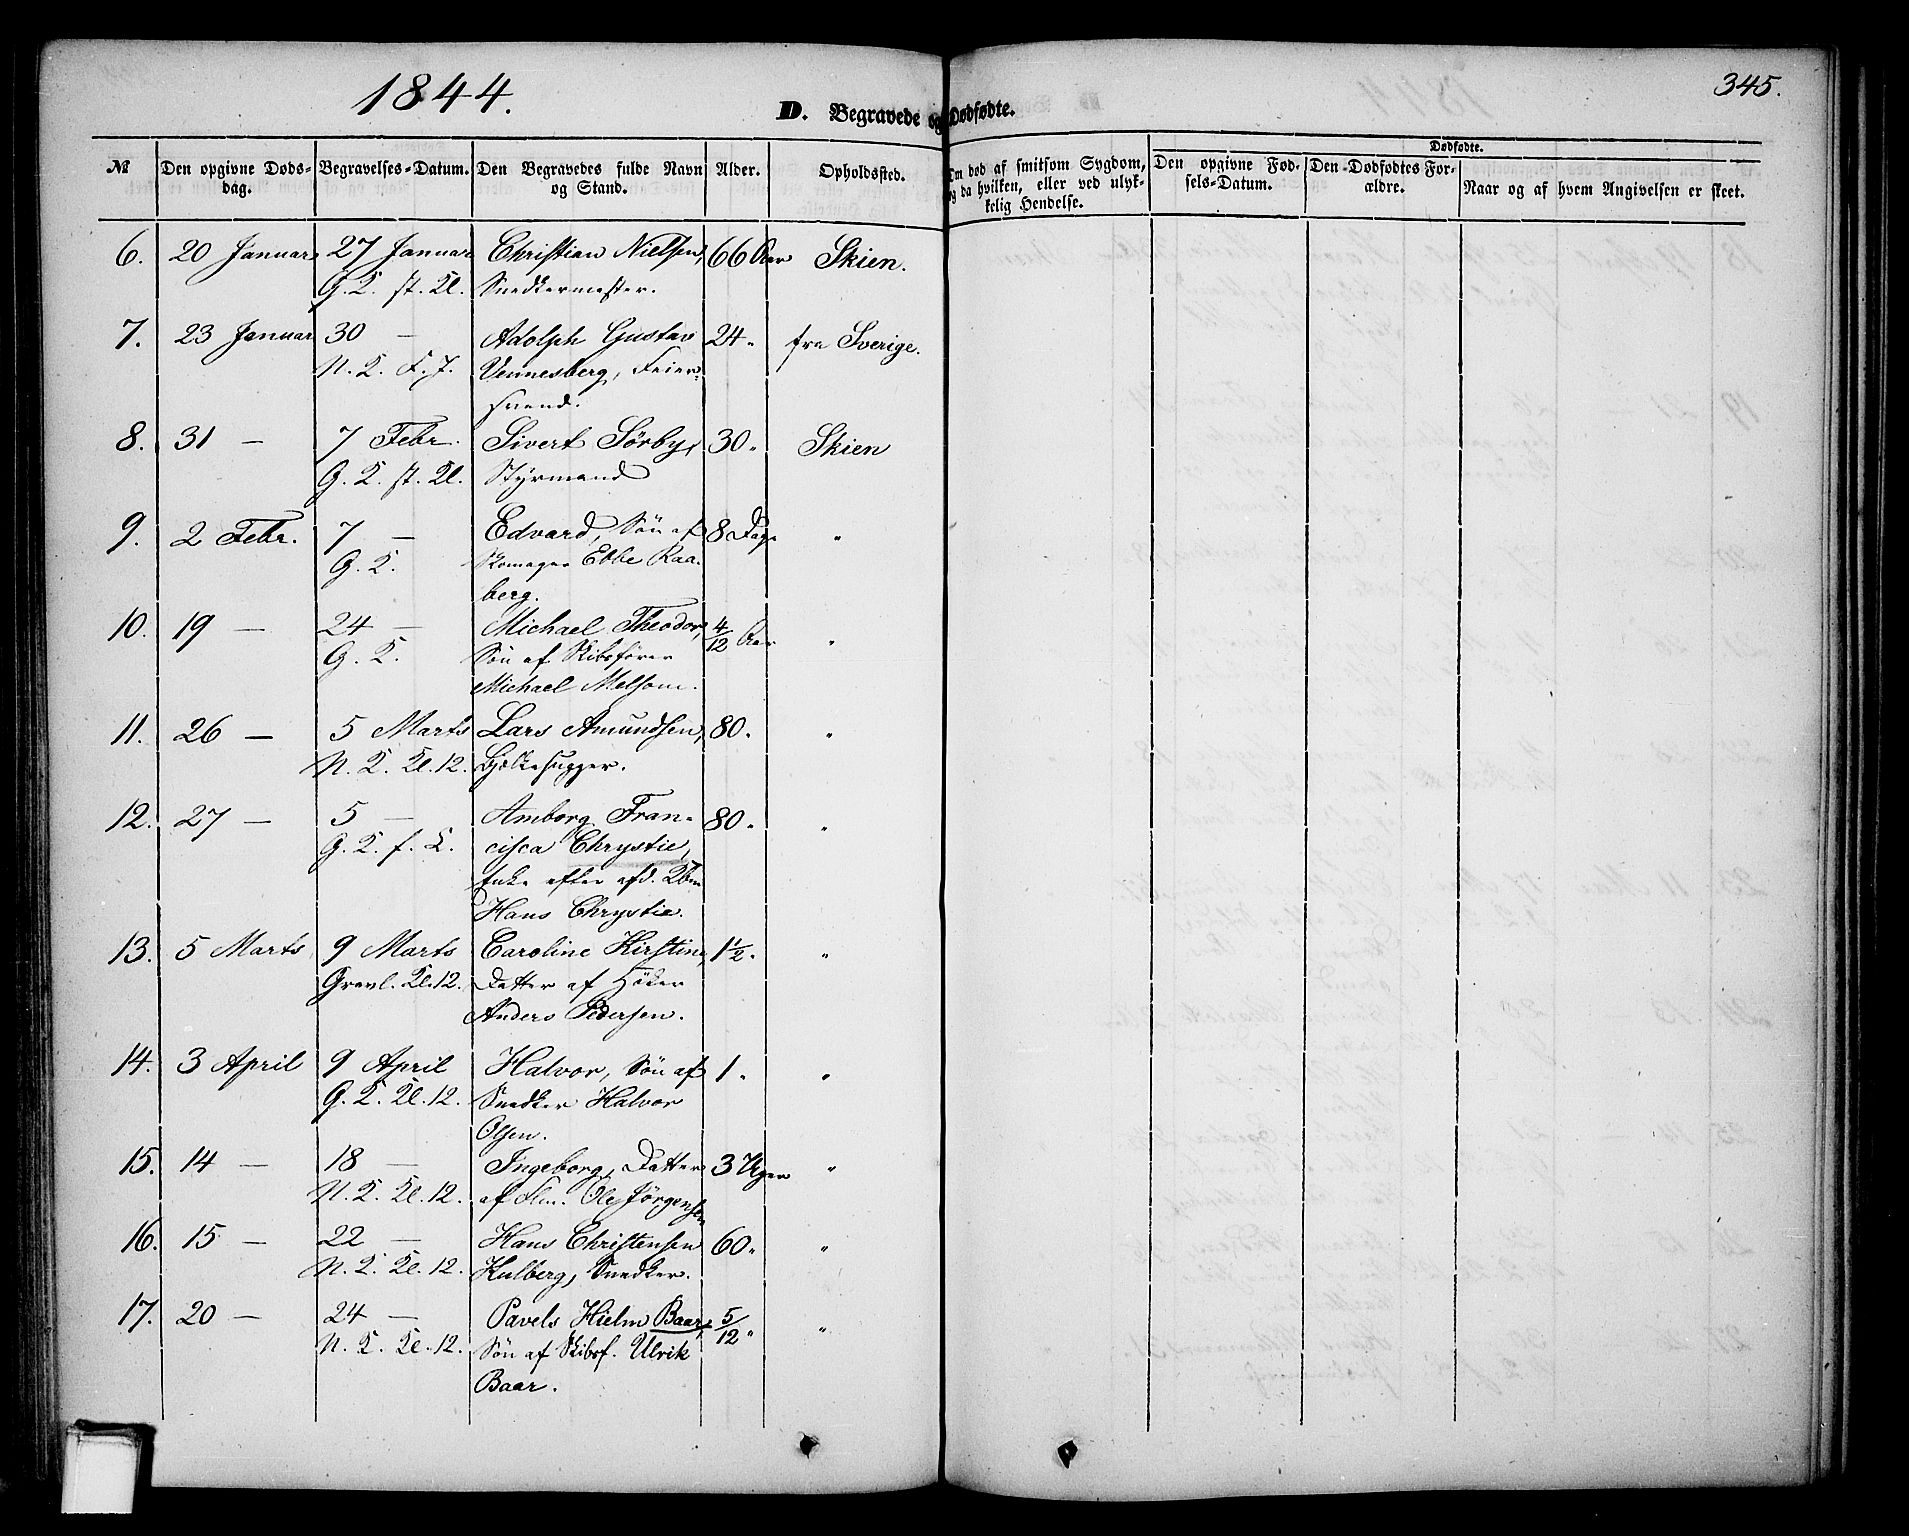 1844.
345.
D. Begravede og Dødfødte.
№
Den opgivne Døds-
dag.
Begravelses-Datum.
Den Begravedes fulde Navn
og Stand.
Alder.
Opholdssted.
Om død af smitsom Sygdom,
og da hvilken, eller ved ulyk-
kelig Hendelse.
Dødfødte.
Den opgivne Fød-
sels-Datum.
Den Dødfødtes For-
ældre.
Naar og af hvem Angivelsen er skeet.
6. 20 Januar 27 Januar Christian Nielsen, 66 Aar Skien.
G. K. st. Kl. Snedkermester.
7. 23 Januar 30 — Adolph Gustav 24 " fra Sverige.
N. K. F. J. Vennesberg, Feier-
svend.
8. 31 — 7 Febr. Sivert Sörby, 30 " Skien
G. K. st. Kl. Styrmand
9. 2 Febr. 7 — Edvard, Sön af 8 Dage "
G. K. Skomager Ebbe Raa-
berg.
10. 19 — 24 — Michael Theodor, 4/12 Aar "
G. K. Sön af Skibsförer
Michael Melsom.
11. 26 — 5 Marts Lars Amundsen, 80 " "
N. K. Kl. 12. Bjelkehugger.
12. 27 — 5 — Amborg Fran- 80 " "
G. K. f. L. cisca Chrystie,
Enke efter afd. Kbm.
Hans Chrystie.
13. 5 Marts 9 Marts Caroline Kirstine, 1 1/2 " "
Gravl. Kl. 12. Datter af Höker
Anders Pedersen.
14. 3 April 9 April Halvor, Sön af 1 " "
G. K. Kl. 12. Snedker Halvor
Olsen.
15. 14 — 18 — Ingeborg, Datter 3 Uger "
N. K. Kl. 12. af Ole Jörgensen
16. 15 — 22 — Hans Christensen 60 " "
N. K. Kl. 12. Kulberg, Snedker.
17. 20 — 24 — Pavels Hielm Baar, 5/12 " "
N. K. Kl. 12. Sön af Skibsf. Ulrik
Baar.